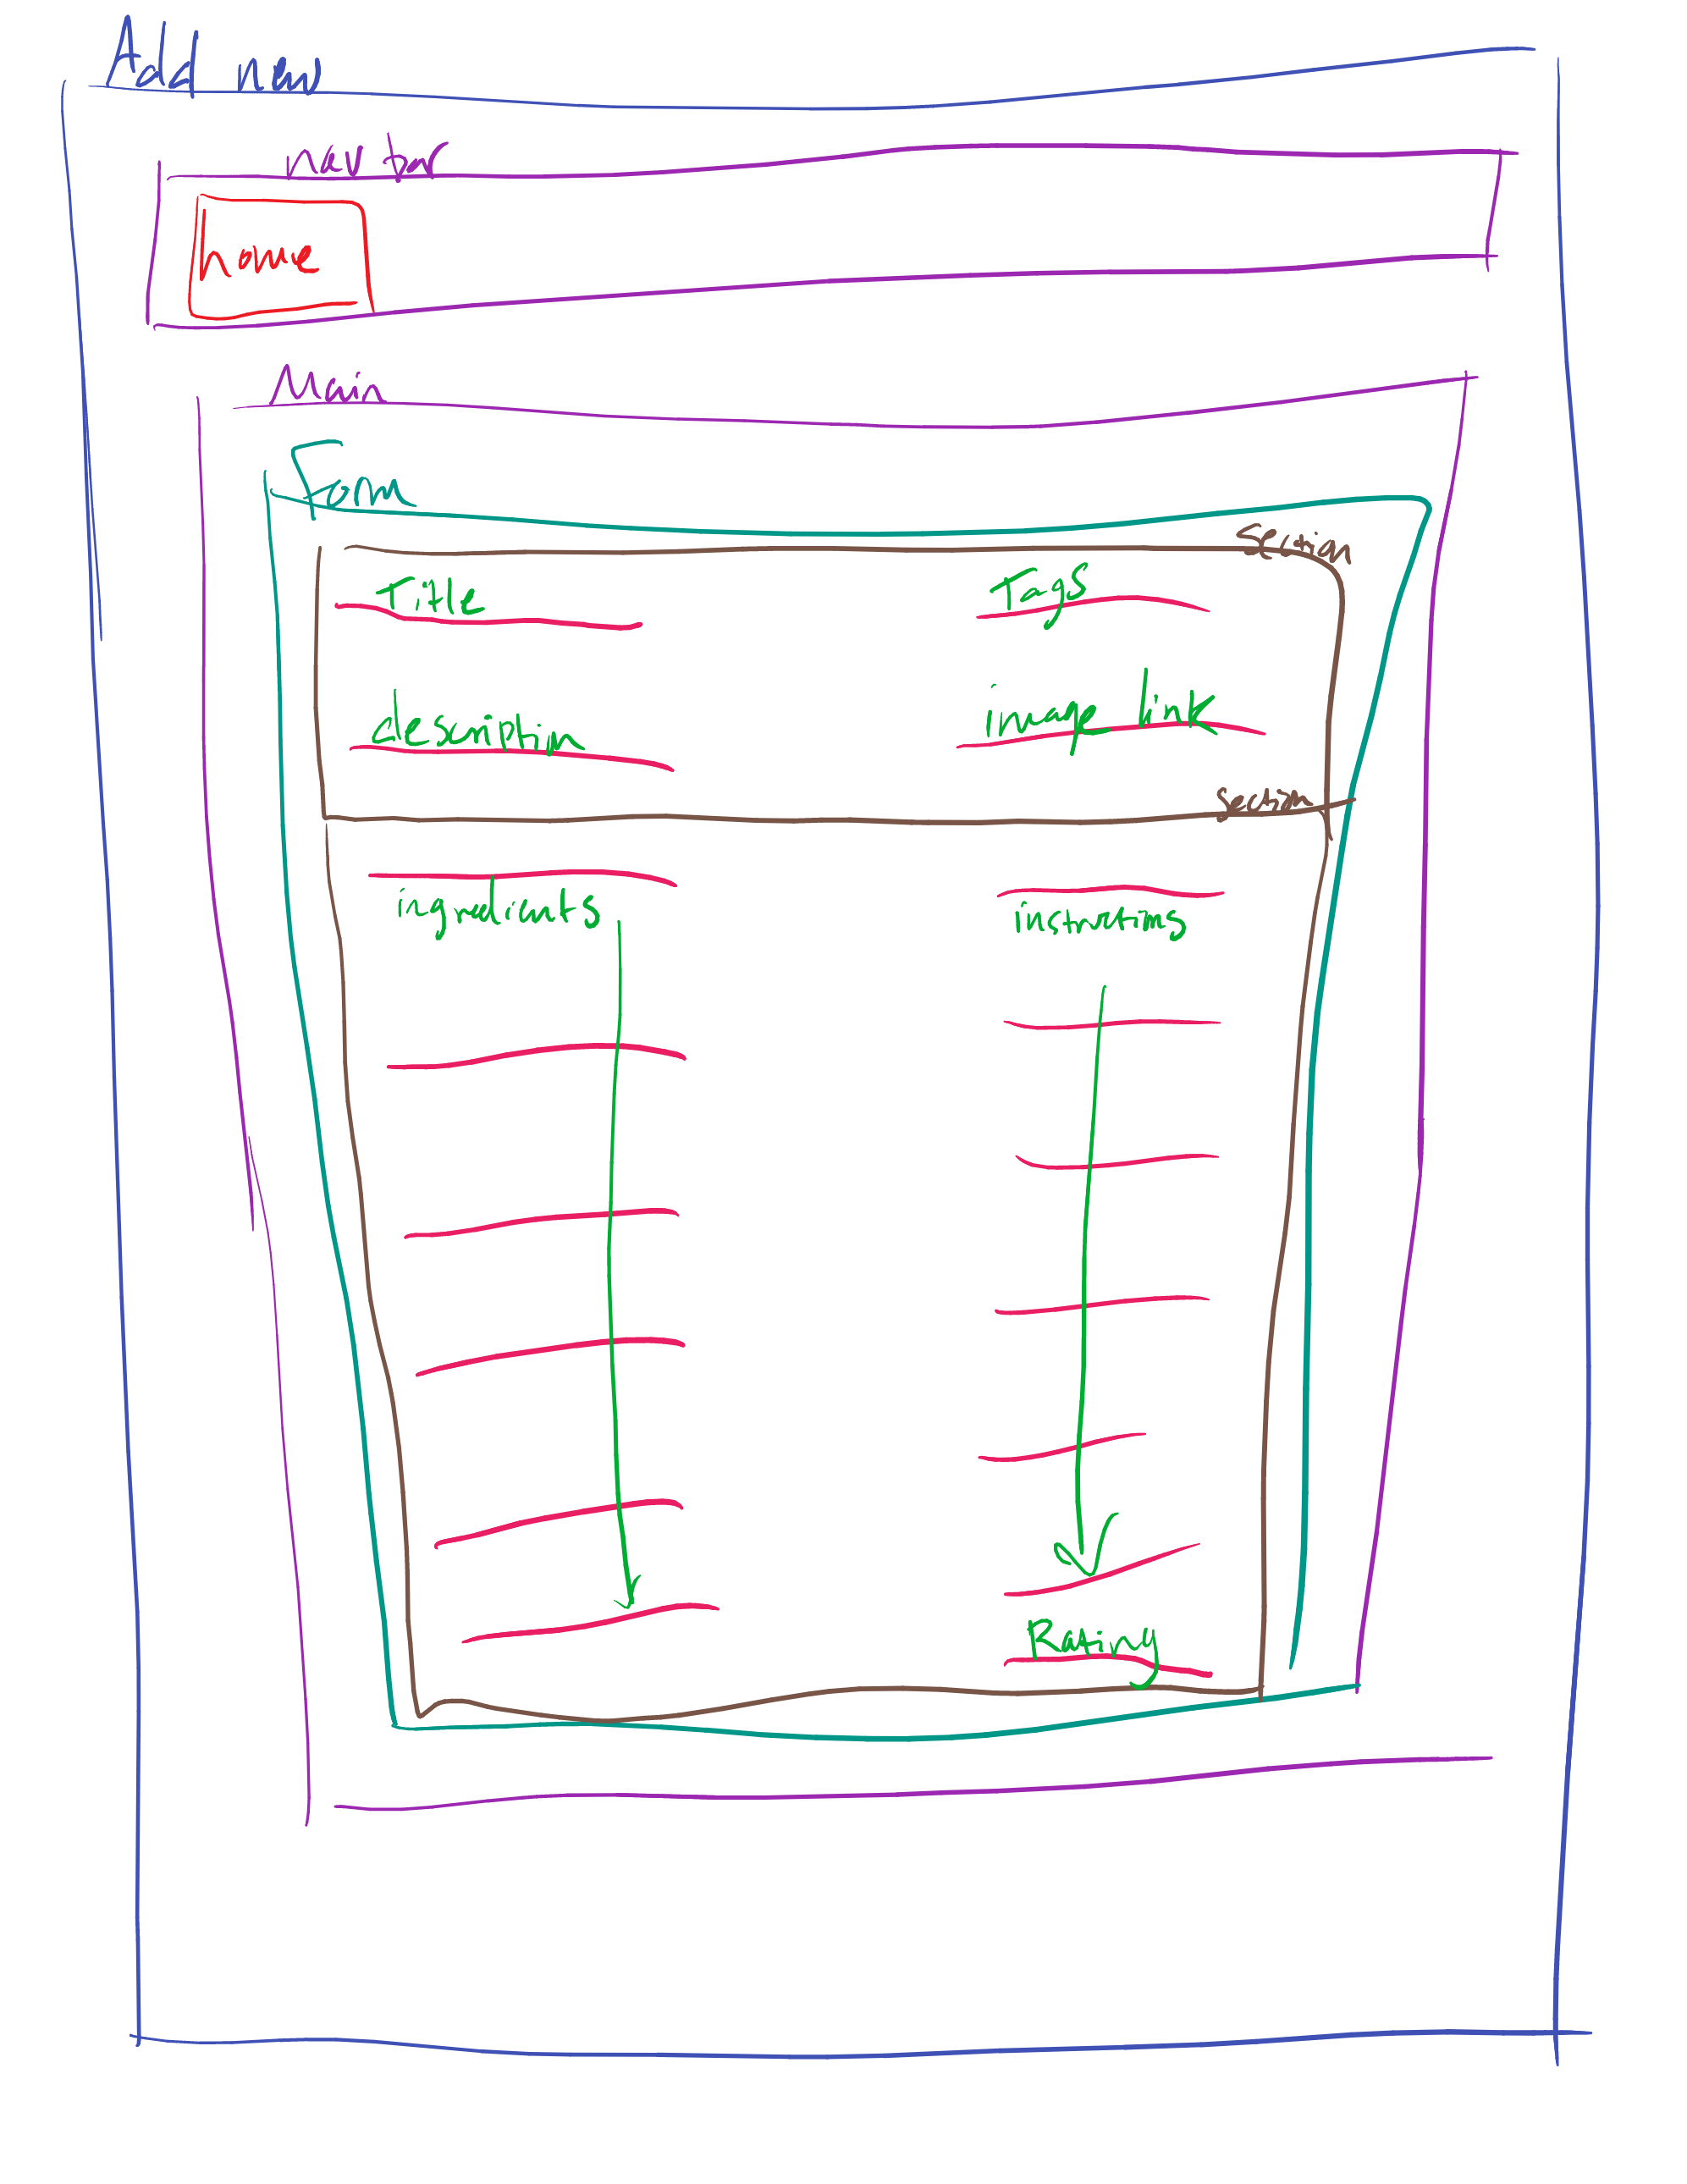 Add new
nav bar
home
Main
Form
section
Title
Tags
description
image link
section
ingredients
instructions
Rating